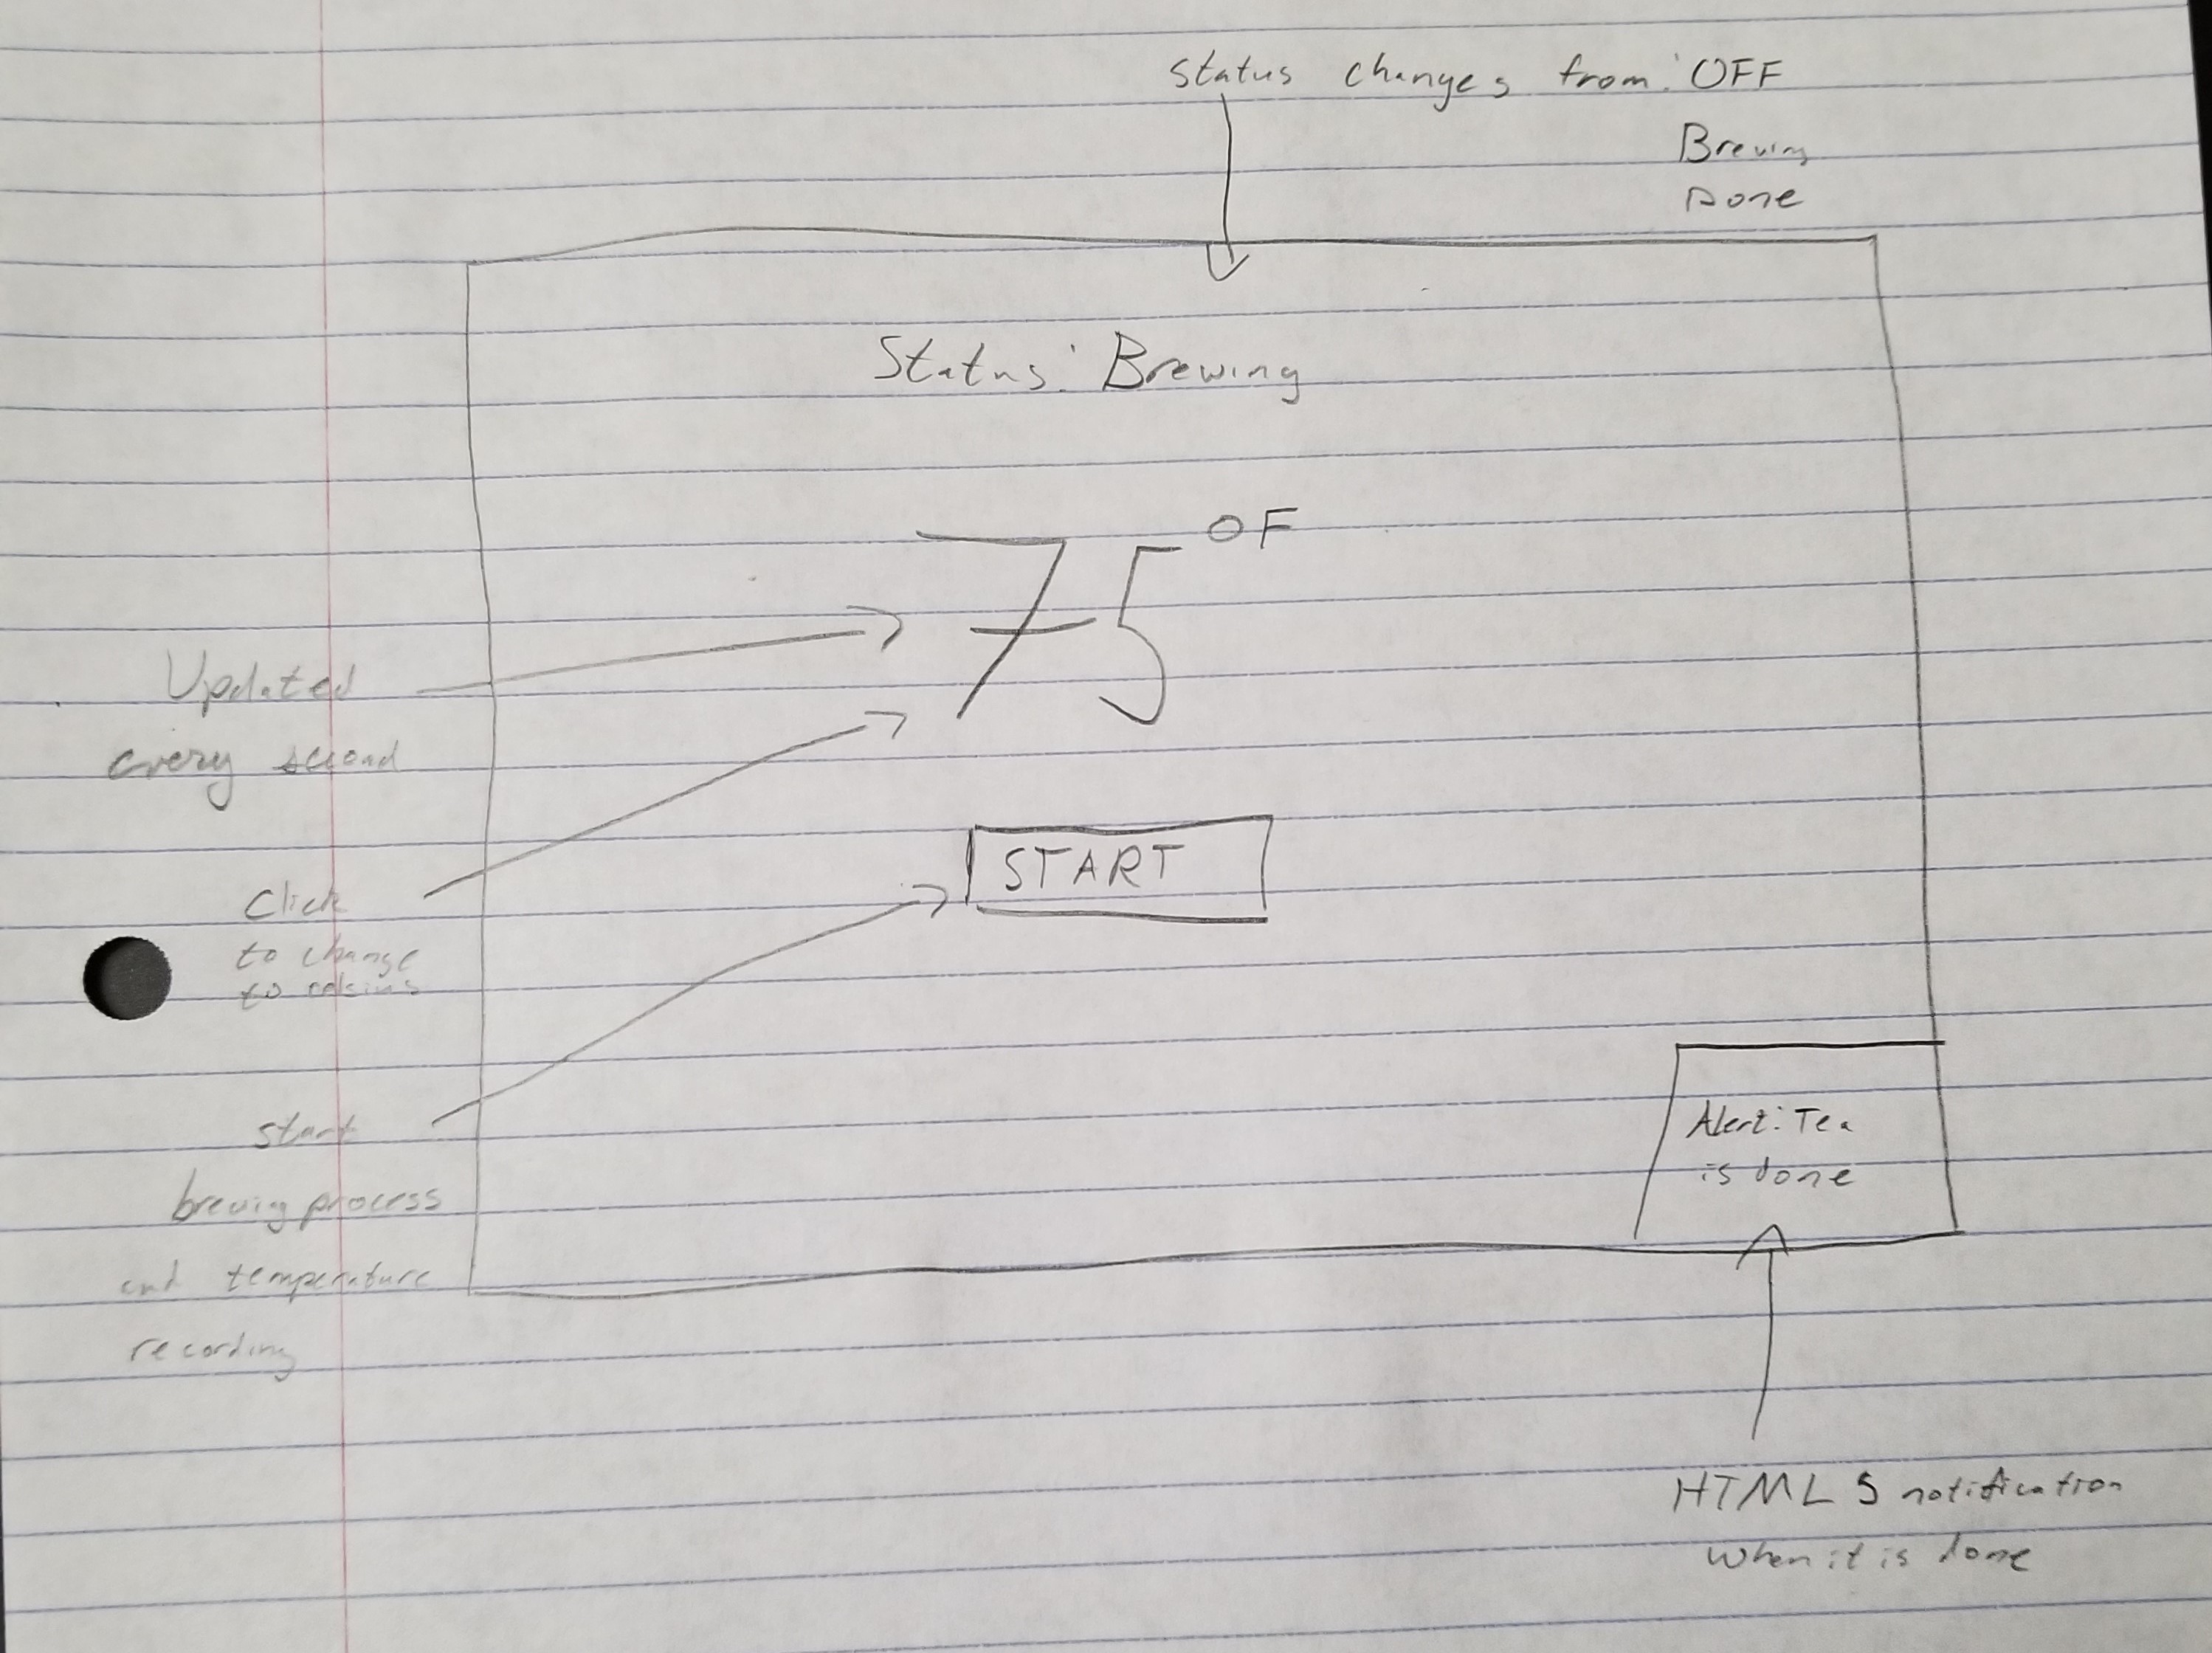 Status changes from: OFF
Brewing
Done
Status: Brewing
75 °F
Updated
every second
Click
to change
to celsius
START
start
brewing process
and temperature
recording
Alert: Tea
is done
HTML 5 notification
when it is done